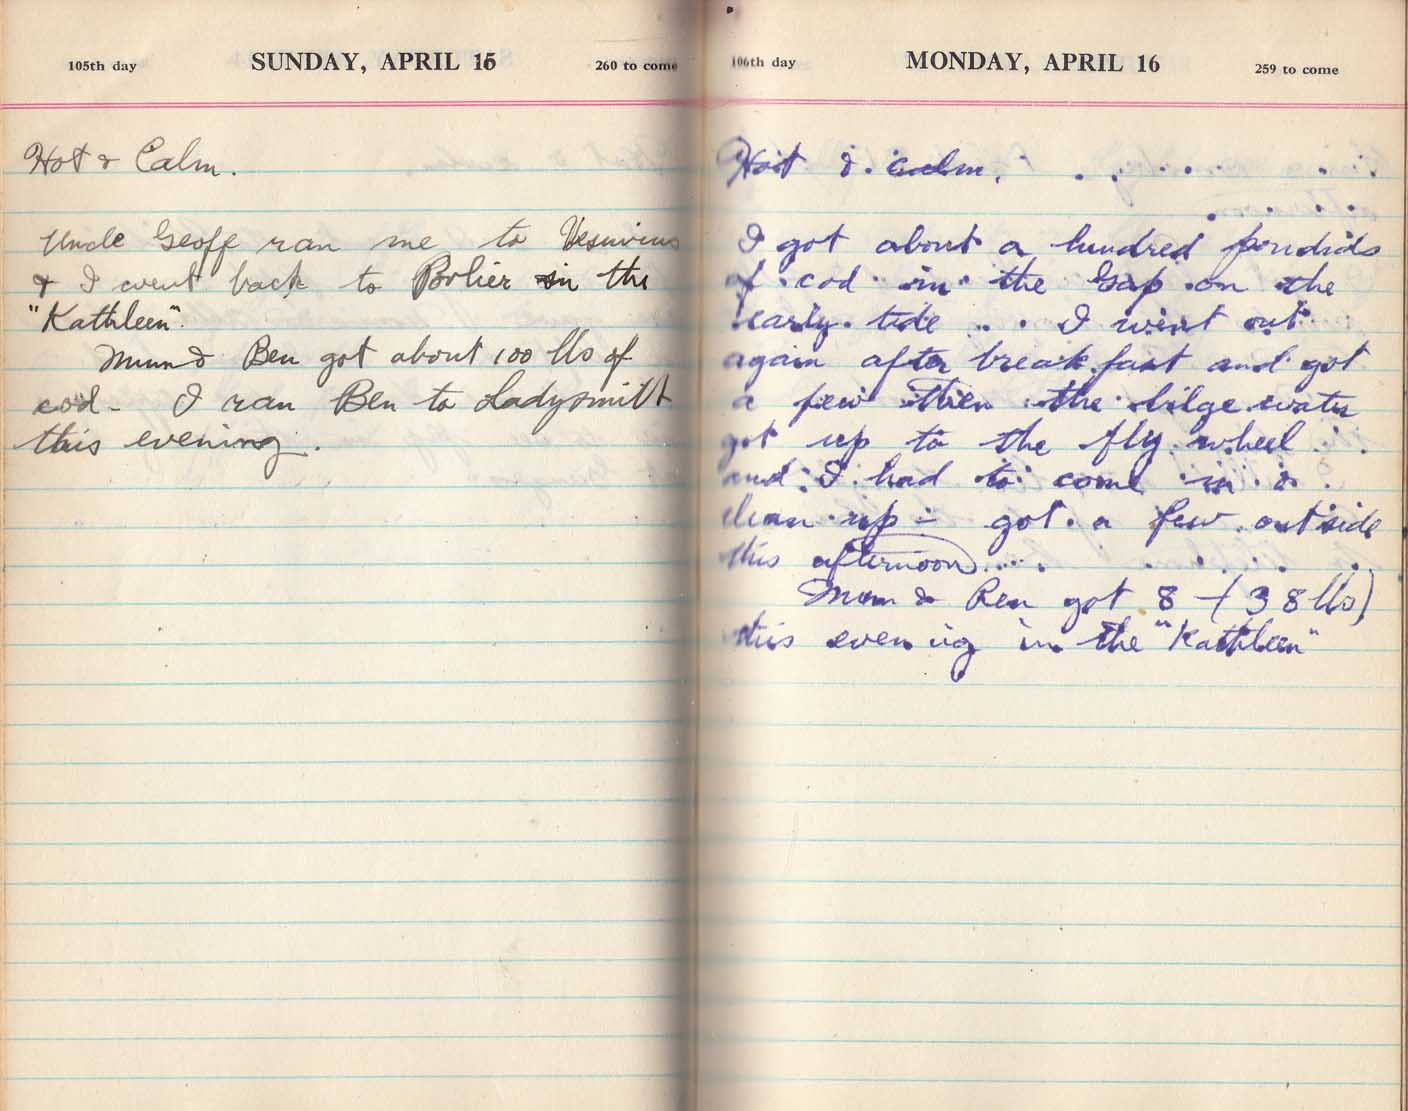 105th day SUNDAY, APRIL 15 260 to come
Hot & Calm.
Uncle Geoff ran me to Vesuvius
& I went back to Bolier in the
"Kathleen".
Mum & Ben got about 100 lbs of
cod - I ran Ben to Ladysmith
this evening.
106th day MONDAY, APRIL 16 259 to come
Hot & calm.
I got about a hundred pounds
of cod in the Gap on the
early tide .. . I went out
again after breakfast and got
a few then the bilge water
got up to the fly wheel
and I had to come in &
clean up - got a few outside
this afternoon....
Mum & Ben got 8 - (38 lbs)
this evening in the "Kathleen"